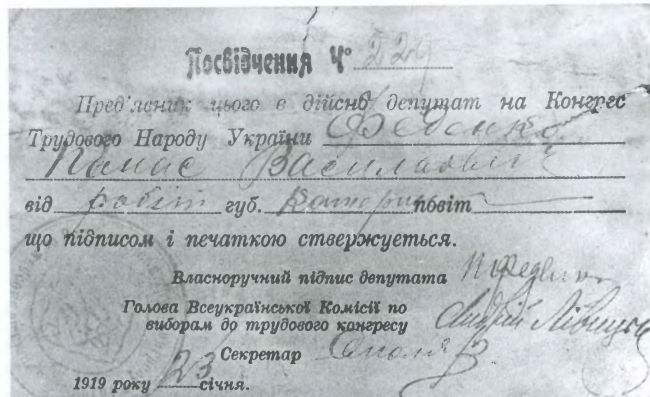 Посвідчення Ч° 224
Пред'ясник цього є дійсно депутат на Конгрес
Трудового Народу України Феденко
Панас Васильович
від робіт губ. повіт
що підписом і печаткою ствержується.
Власноручний підпис депутата П Феденко
Голова Всеукраїнської Комісії по
виборам до трудового конгресу Андрій Лівицький
Секретар
1919 року 23 січня.